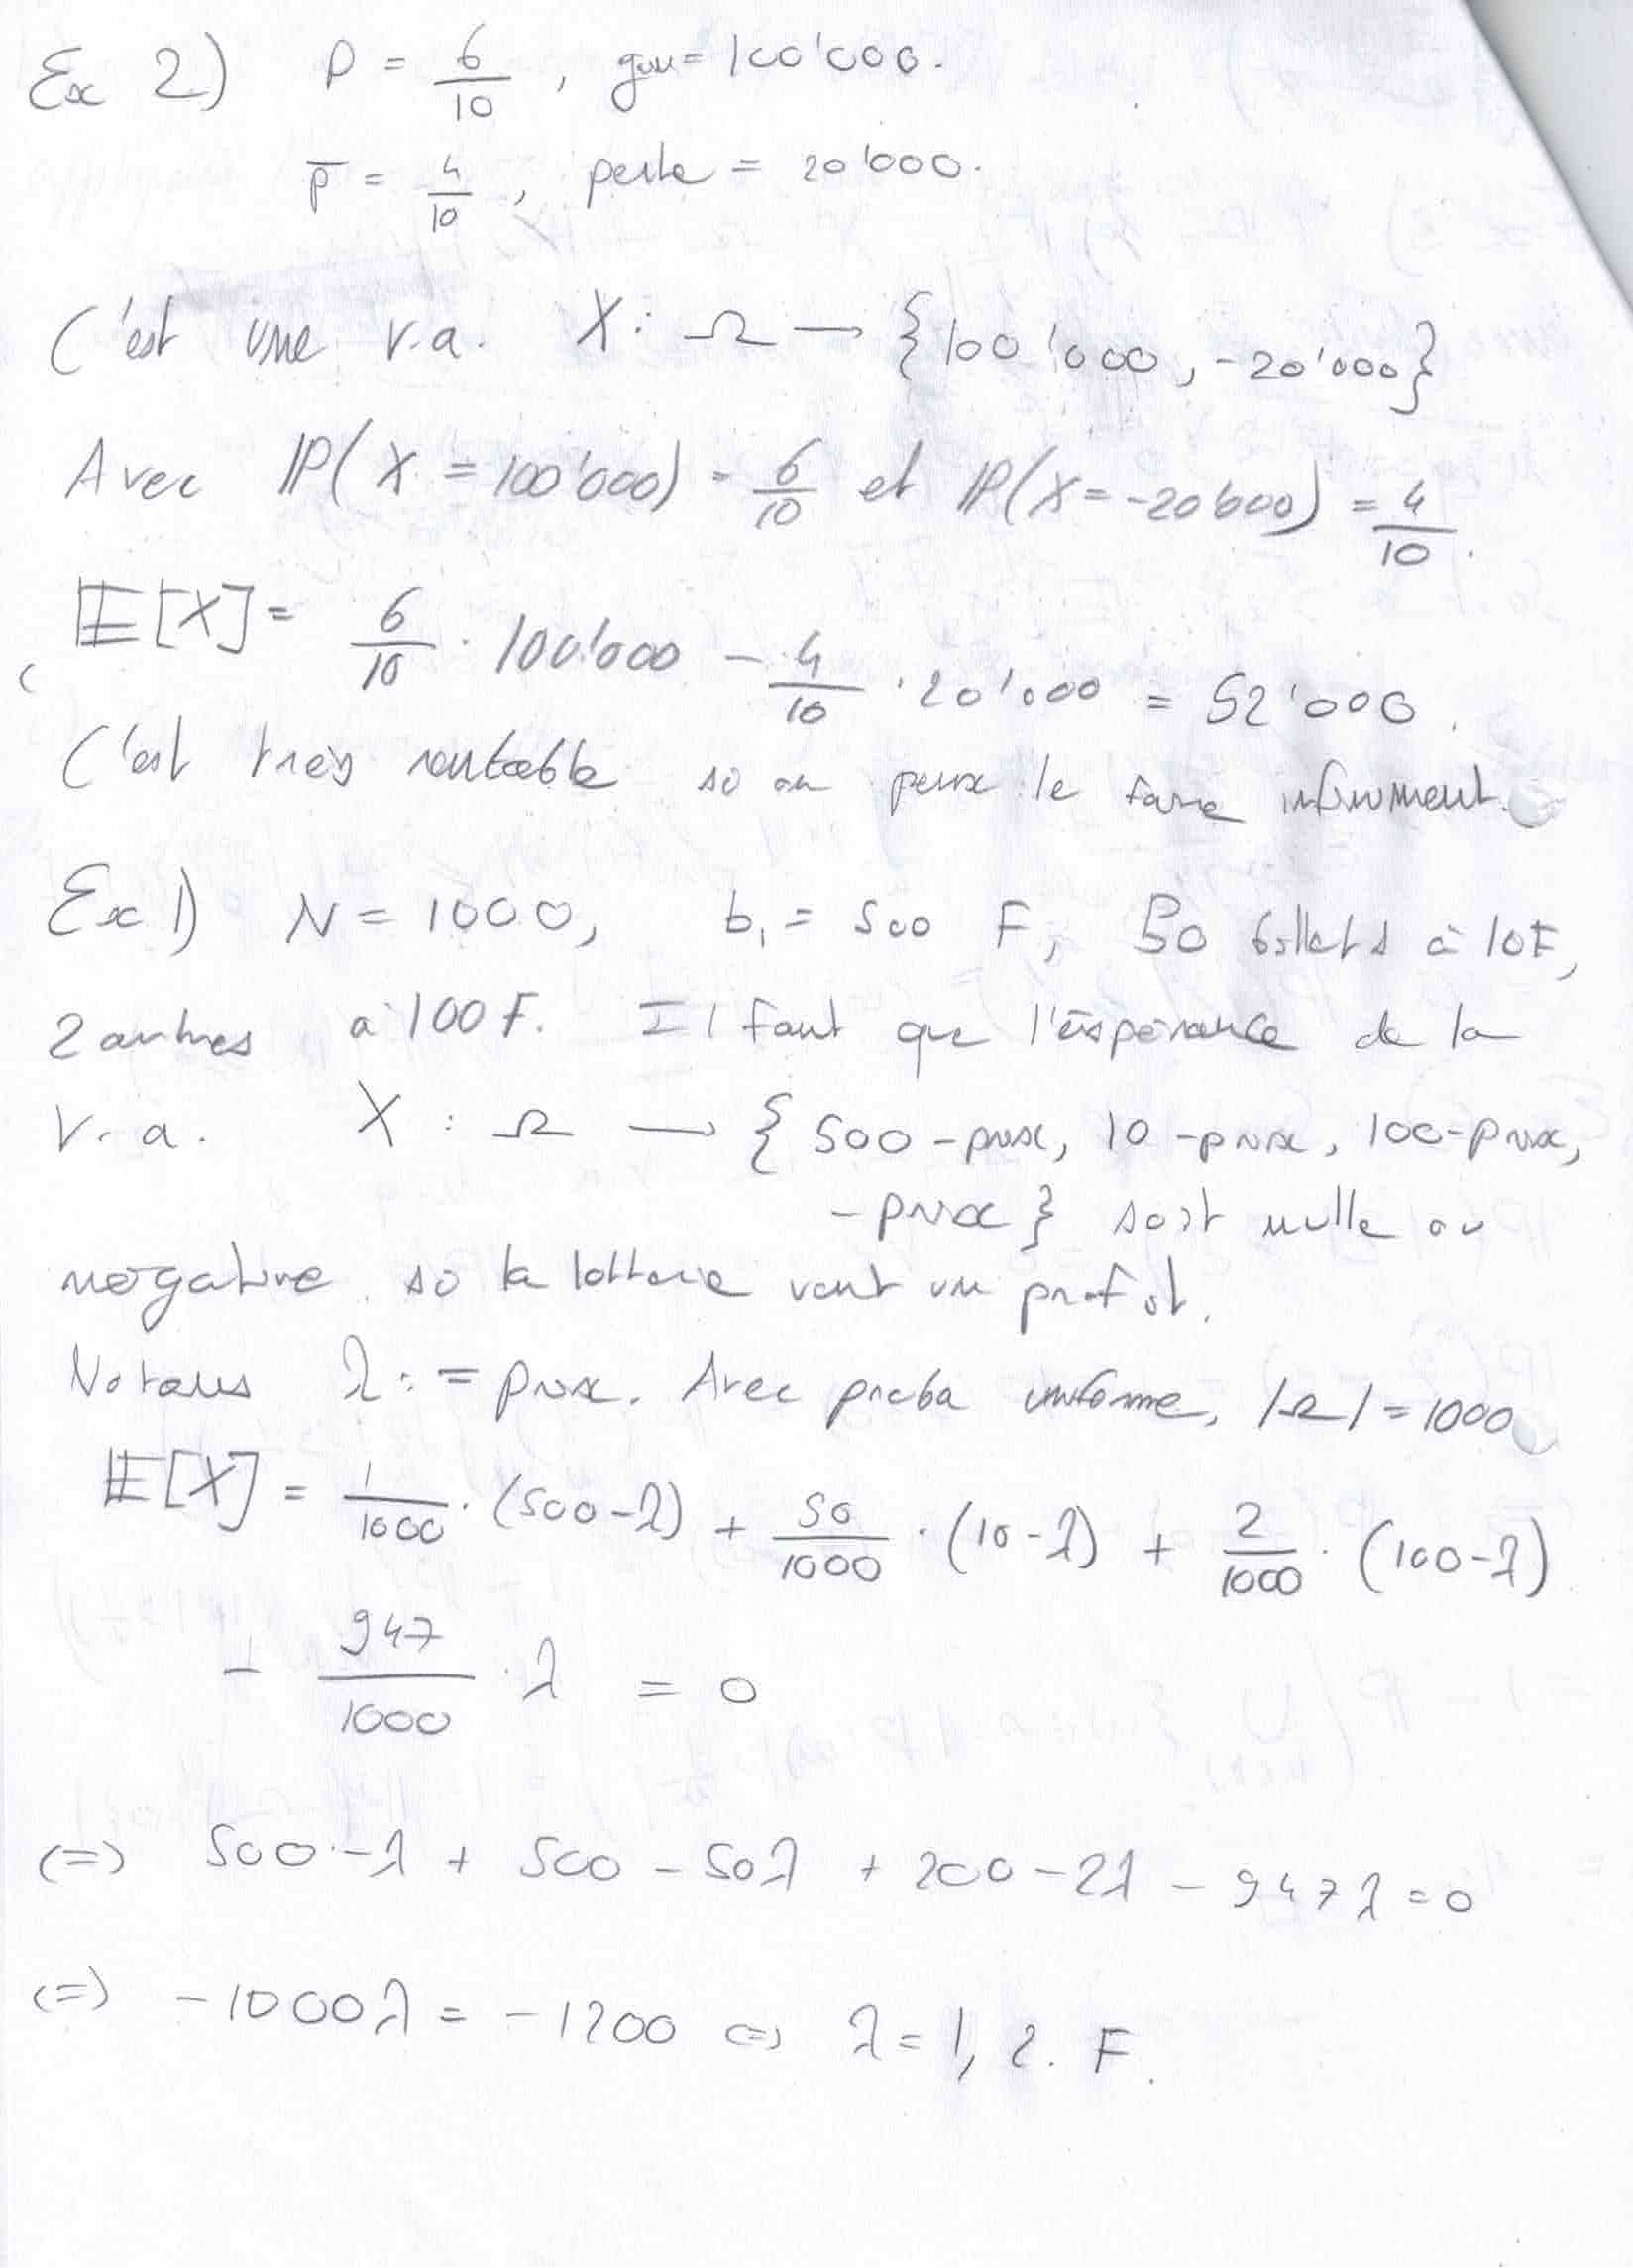 Ex 2) P = 6/10 , gain = 100'000.
p̅ = 4/10 , perte = 20'000.
C'est une v.a. X : Ω → {100'000, -20'000}
Avec ℙ(X = 100'000) = 6/10 et ℙ(X = -20'000) = 4/10.
𝔼[X] = 6/10 · 100'000 - 4/10 · 20'000 = 52'000.
C'est très rentable si on peux le faire infiniment.
Ex 1) N = 1000, b₁ = 500 F, 50 billets à 10F,
2 autres à 100 F. Il faut que l'éspérance de la
v.a. X : Ω → {500 - prix, 10 - prix, 100 - prix,
- prix} soit nulle ou
négative si la lotterie veut un profit.
Notons λ := prix. Avec proba uniforme, |Ω| = 1000
𝔼[X] = 1/1000 · (500 - λ) + 50/1000 · (10 - λ) + 2/1000 · (100 - λ)
- 947/1000 · λ = 0
(=) 500 - λ + 500 - 50λ + 200 - 2λ - 947λ = 0
(=) -1000λ = -1200 (=) λ = 1,2. F.